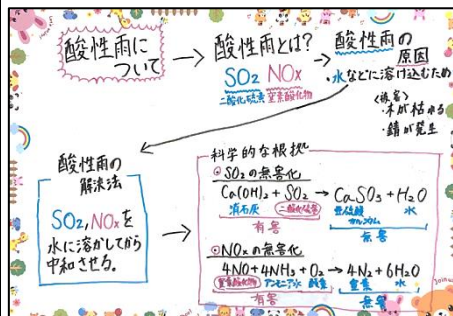 酸性雨に
ついて
酸性雨とは?
SO₂ NOx
二酸化硫黄 窒素酸化物
酸性雨の
原因
・水などに溶け込むため
<被害>
・木が枯れる
・錆が発生
酸性雨の
解決法
SO₂, NOxを
水に溶かしてから
中和させる。
科学的な根拠
⊙SO₂の無害化
Ca(OH)₂ + SO₂ → CaSO₃ + H₂O
消石灰 二酸化硫黄 亜硫酸カルシウム 水
有害 無害
⊙NOxの無害化
4NO+4NH₃+O₂ → 4N₂+6H₂O
窒素酸化物 アンモニア水 酸素 窒素 水
有害 無害